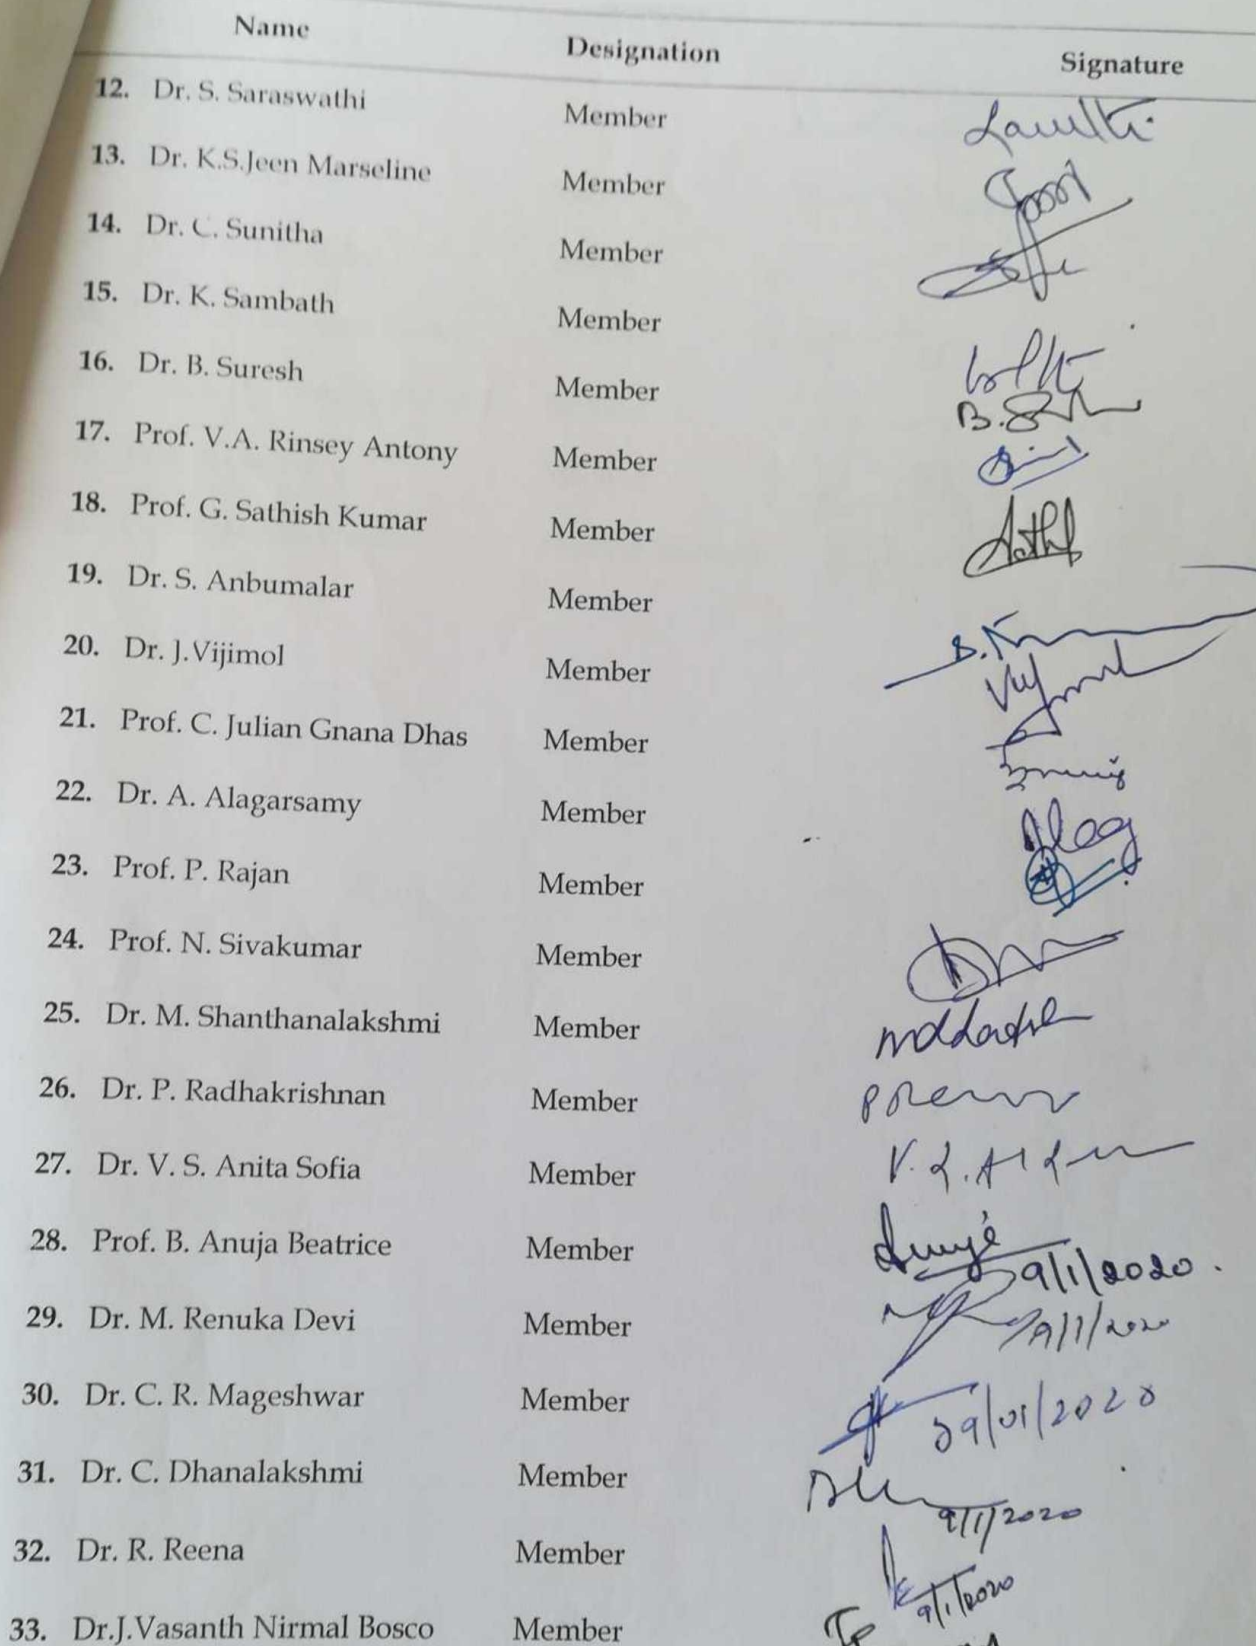 Name Designation Signature
12. Dr. S. Saraswathi Member
13. Dr. K.S.Jeen Marseline Member
14. Dr. C. Sunitha Member
15. Dr. K. Sambath Member
16. Dr. B. Suresh Member
17. Prof. V.A. Rinsey Antony Member
18. Prof. G. Sathish Kumar Member
19. Dr. S. Anbumalar Member
20. Dr. J.Vijimol Member
21. Prof. C. Julian Gnana Dhas Member
22. Dr. A. Alagarsamy Member
23. Prof. P. Rajan Member
24. Prof. N. Sivakumar Member
25. Dr. M. Shanthanalakshmi Member
26. Dr. P. Radhakrishnan Member
27. Dr. V. S. Anita Sofia Member
28. Prof. B. Anuja Beatrice Member 9/1/2020.
29. Dr. M. Renuka Devi Member 9/1/2020
30. Dr. C. R. Mageshwar Member 09/01/2020
31. Dr. C. Dhanalakshmi Member 9/1/2020
32. Dr. R. Reena Member 9/1/2020
33. Dr.J.Vasanth Nirmal Bosco Member